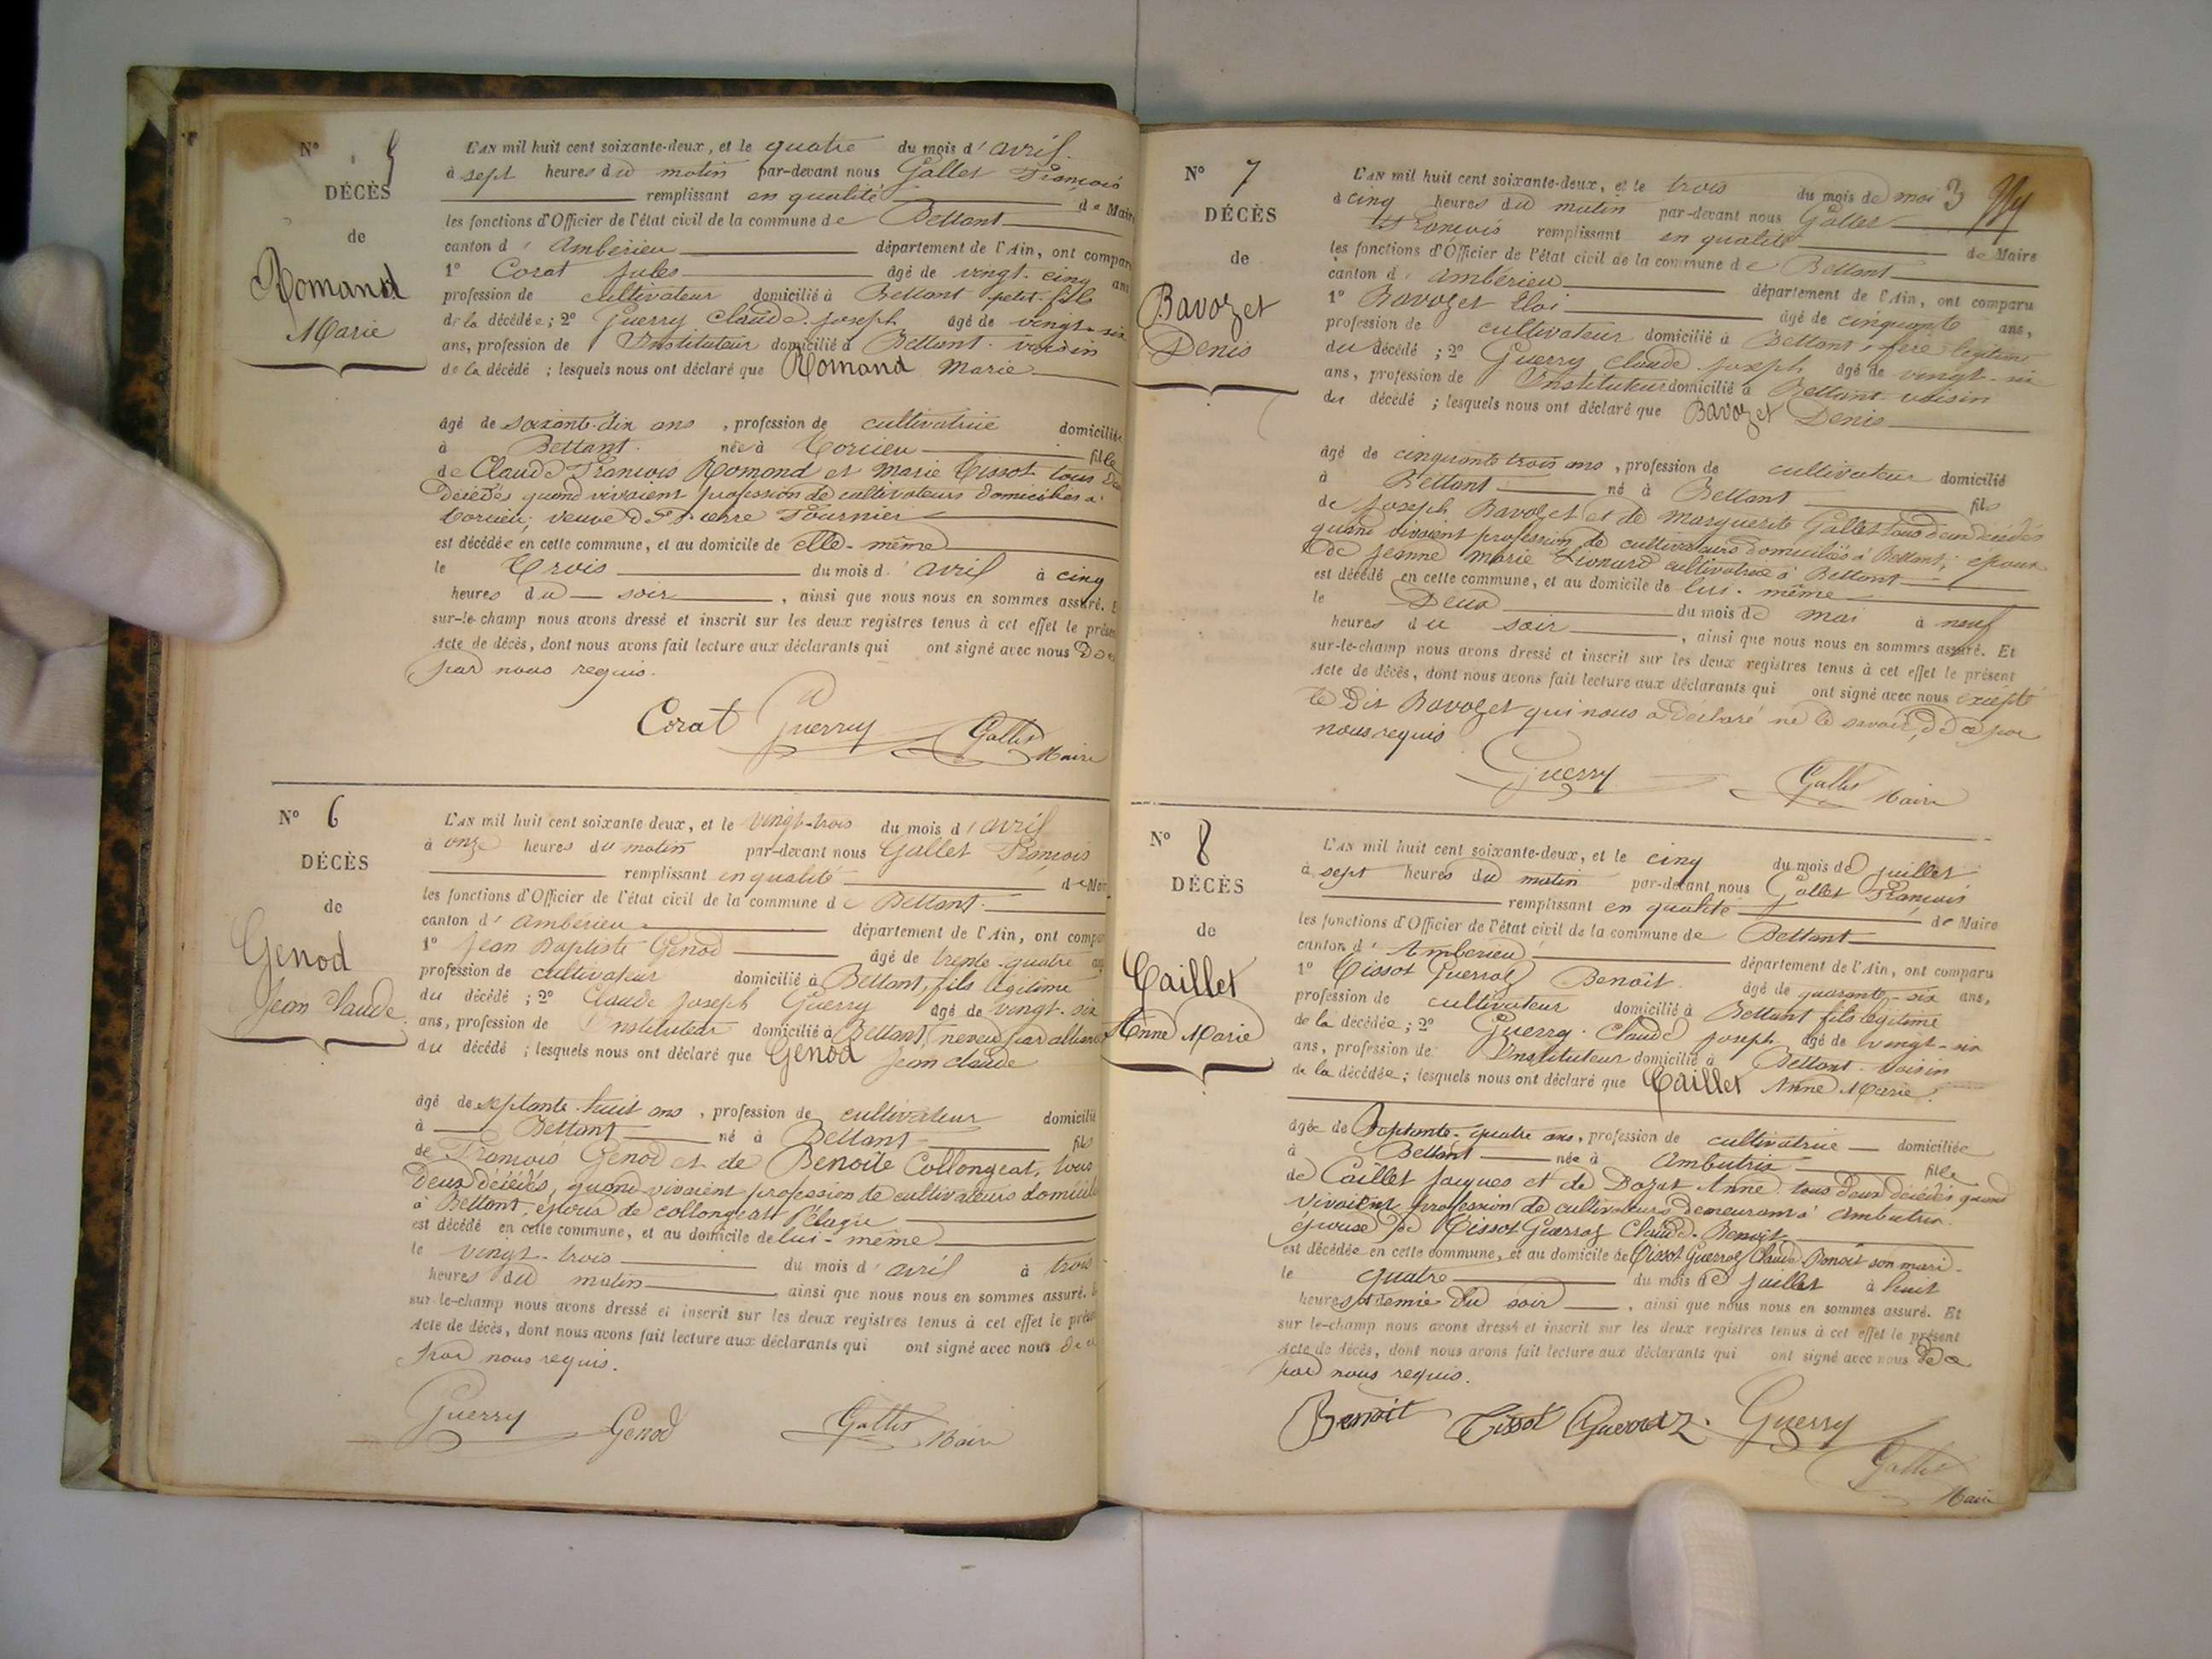 N° 5
DÉCÈS
de
Romand
Marie
L'AN mil huit cent soixante-deux, et le quatre du mois d' avril
à sept heures du matin par-devant nous Gallet François
remplissant en qualité de Maire
les fonctions d'Officier de l'état civil de la commune de Bettant
canton d' Ambérieu département de l'Ain, ont compar
1° Corat Jules âgé de vingt-cinq ans
profession de cultivateur domicilié à Bettant petit-fils
de la décédée; 2° Guerry Claude Joseph âgé de vingt-six
ans, profession de Instituteur domicilié à Bettant voisin
de la décédé ; lesquels nous ont déclaré que Romand Marie
âgé de soixante-dix ans, profession de cultivatrice domicilié
à Bettant née à Torcieu fille
de Claude François Romand et Marie Tissot tous
décédés quand vivaient profession de cultivateurs domiciliés à
Torcieu; veuve de Pierre Fournier
est décédée en cette commune, et au domicile de elle-même
le trois du mois d' avril à cinq
heures du soir, ainsi que nous nous en sommes assuré. E
sur-le-champ nous avons dressé et inscrit sur les deux registres tenus à cet effet le prése
Acte de décès, dont nous avons fait lecture aux déclarants qui ont signé avec nous De
par nous requis.
Corat Guerry Gallet Maire
N° 6
DÉCÈS
de
Genod
Jean Claude
L'AN mil huit cent soixante deux, et le vingt-trois du mois d' avril
à onze heures du matin par-devant nous Gallet François
remplissant en qualité de Mai
les fonctions d'Officier de l'état civil de la commune de Bettant
canton d' Ambérieu département de l'Ain, ont comp
1° Jean Baptiste Genod âgé de trente-quatre
profession de cultivateur domicilié à Bettant, fils légitime
du décédé ; 2° Claude Joseph Guerry âgé de vingt-six
ans, profession de Instituteur domicilié à Bettant, neveu par alliance
du décédé ; lesquels nous ont déclaré que Genod Jean Claude
âgé de septante-huit ans, profession de cultivateur domicilié
à Bettant né à Bettant fils
de François Genod et de Benoîte Collongeat, tous
deux décédés, quand vivaient profession de cultivateurs domicilié
à Bettant, époux de Collongeat Pélagie
est décédé en cette commune, et au domicile de lui-même
le vingt-trois du mois d' avril à trois
heures du matin, ainsi que nous nous en sommes assuré.
sur-le-champ nous avons dressé et inscrit sur les deux registres tenus à cet effet le prése
Acte de décès, dont nous avons fait lecture aux déclarants qui ont signé avec nous de ce
par nous requis.
Guerry Genod Gallet Maire
3
N° 7
DÉCÈS
de
Bavozet
Denis
L'AN mil huit cent soixante-deux, et le trois du mois de mai
à cinq heures du matin par-devant nous Gallet
François remplissant en qualité de Maire
les fonctions d'Officier de l'état civil de la commune de Bettant
canton d' Ambérieu département de l'Ain, ont comparu
1° Bavozet Eloi âgé de cinquante ans,
profession de cultivateur domicilié à Bettant, frère légitime
du décédé ; 2° Guerry Claude Joseph âgé de vingt-six
ans, profession de Instituteur domicilié à Bettant voisin
du décédé ; lesquels nous ont déclaré que Bavozet Denis
âgé de cinquante trois ans, profession de cultivateur domicilié
à Bettant né à Bettant fils
de Joseph Bavozet et de Marguerite Gallet tous deux décédés
quand vivaient profession de cultivateurs domiciliés à Bettant; époux
de Jeanne Marie Lionard cultivatrice à Bettant
est décédé en cette commune, et au domicile de lui-même
le deux du mois de mai à neuf
heures du soir, ainsi que nous nous en sommes assuré. Et
sur-le-champ nous avons dressé et inscrit sur les deux registres tenus à cet effet le présent
Acte de décès, dont nous avons fait lecture aux déclarants qui ont signé avec nous excepté
le dit Bavozet qui nous a déclaré ne le savoir, de ce par
nous requis
Guerry Gallet Maire
N° 8
DÉCÈS
de
Caillet
Anne Marie
L'AN mil huit cent soixante-deux, et le cinq du mois de juillet
à sept heures du matin par-devant nous Gallet François
remplissant en qualité de Maire
les fonctions d'Officier de l'état civil de la commune de Bettant
canton d' Ambérieu département de l'Ain, ont comparu
1° Tissot Guerraz Benoît âgé de quarante-six ans,
profession de cultivateur domicilié à Bettant fils légitime
de la décédée ; 2° Guerry Claude Joseph âgé de vingt-six
ans, profession de Instituteur domicilié à Bettant voisin
de la décédée ; lesquels nous ont déclaré que Caillet Anne Marie
âgée de septante-quatre ans, profession de cultivatrice domiciliée
à Bettant née à Ambutrix fille
de Caillet Jacques et de Dozat Anne tous deux décédés quand
vivaient profession de cultivateurs demeurant à Ambutrix
épouse de Tissot Guerraz Claude-Benoit
est décédée en cette commune, et au domicile de Tissot Guerraz Claude-Benoit son mari
le quatre du mois de juillet à huit
heures et demie du soir, ainsi que nous nous en sommes assuré. Et
sur le-champ nous avons dressé et inscrit sur les deux registres tenus à cet effet le présent
Acte de décès, dont nous avons fait lecture aux déclarants qui ont signé avec nous de ce
par nous requis.
Benoit Tissot Guerraz Guerry
Gallet
Maire